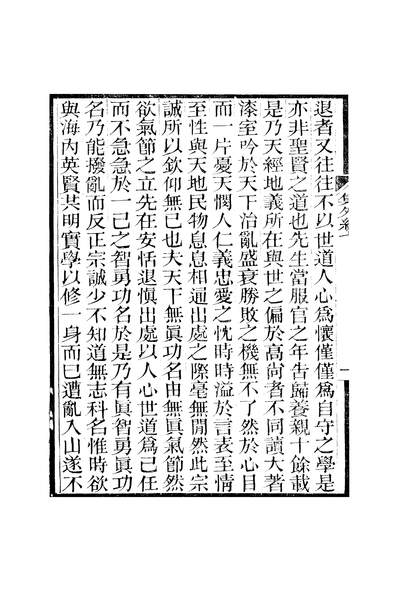 退者又往往不以世道人心爲懷僅僅爲自守之學是
亦非聖賢之道也先生當服官之年告歸養親十餘載
是乃天經地義所在與世之偏於高尙者不同讀大著
漆室吟於天下治亂盛衰勝敗之機無不了然於心目
而一片憂天憫人仁義忠愛之忱時時溢於言表至情
至性與天地民物息息相通出處之際毫無閒然此宗
誠所以欽仰無已也夫天下無眞功名由無眞氣節然
欲氣節之立先在安恬退愼出處以人心世道爲己任
而不急急於一己之智勇功名於是乃有眞智勇眞功
名乃能撥亂而反正宗誠少不知道無志科名惟時欲
與海內英賢共明實學以修一身而已遭亂入山遂不